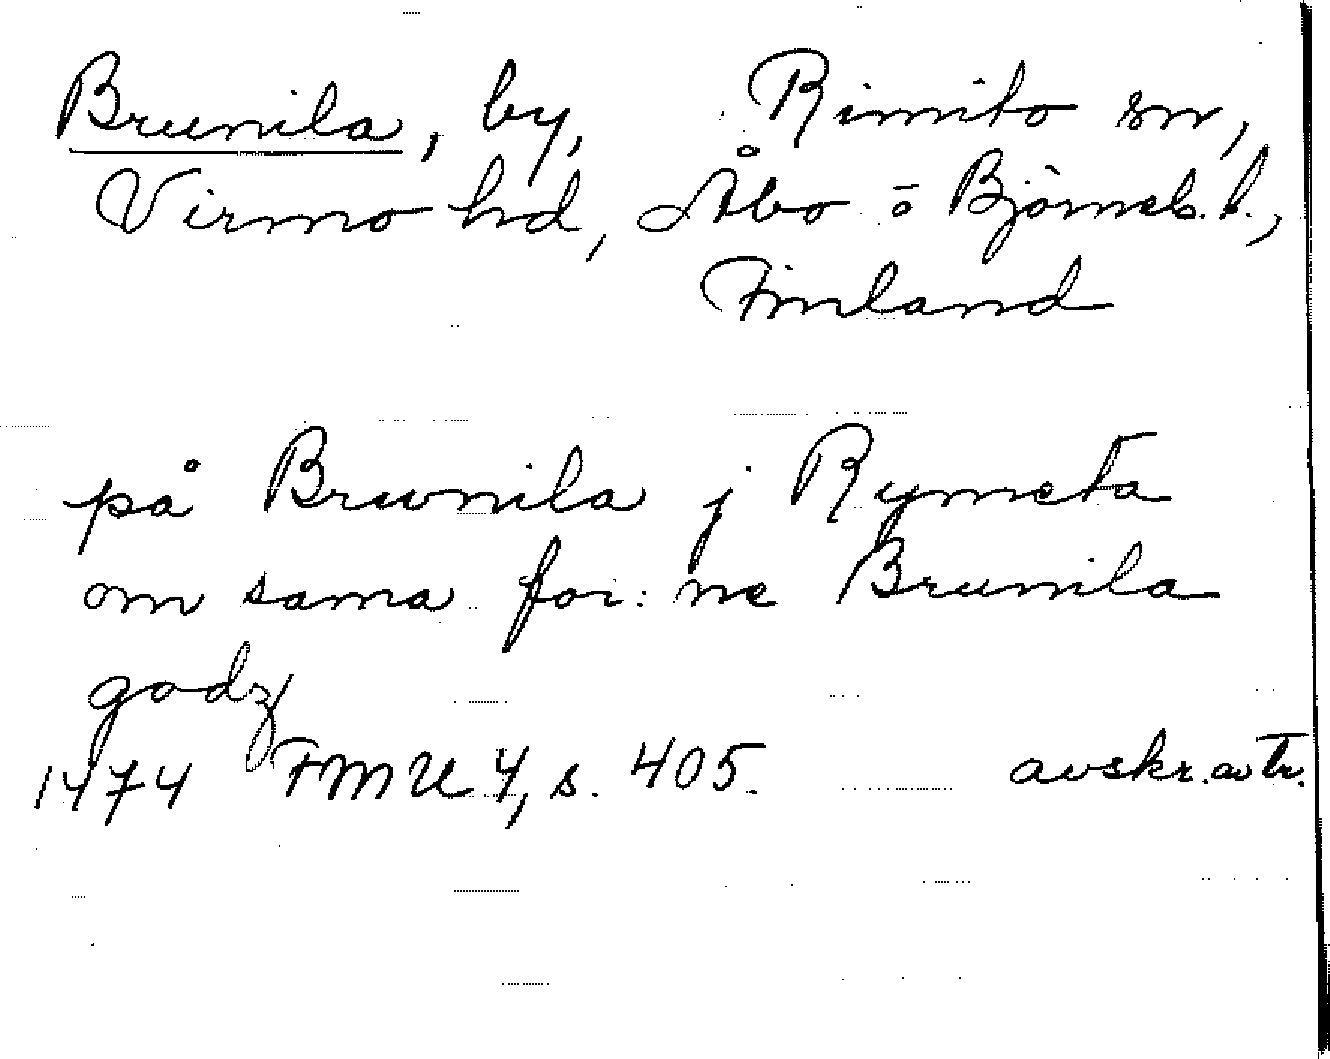 Brunila, by, Rimito sn,
Virmo hd, Åbo o Björneb. l.,
Finland
på Brwnila j Rymeta
om sama for: ne Brunila
godz
1474 FMU 4, s. 405. avskr. av tr.